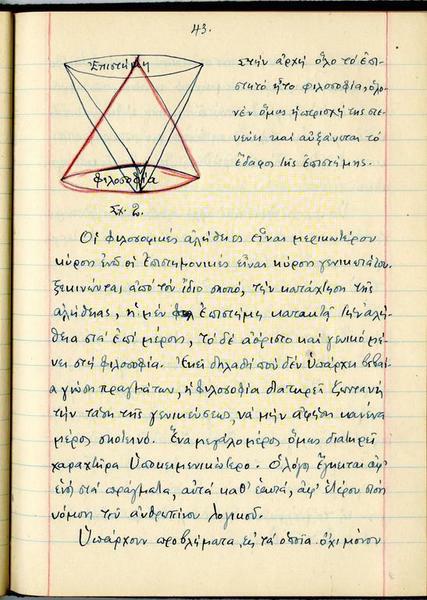 43.
Ἐπιστήμη
φιλοσοφία
Σχ. 2.
Στὴν ἀρχὴ ὅλο τὸ ἐπι-
στητὸ ἦτο φιλοσοφία, ὁλο-
νὲν ὅμως ἡ περιοχή της στε-
νεύει καὶ αὐξάνεται τὸ
ἔδαφος τῆς ἐπιστήμης.
Οἱ φιλοσοφικὲς ἀλήθειες εἶναι μερικώτερον
κῦρος ἐνῶ οἱ ἐπιστημονικὲς εἶναι κύρους γενικωτάτου.
Ξεκινώντας ἀπὸ τὸν ἴδιο σκοπό, τὴν κατάχτηση τῆς
ἀλήθειας, ἡ μὲν ἐπιστήμη κατακτᾷ τὴν ἀλή-
θεια στὰ ἐπὶ μέρους, τὸ δὲ ἀόριστο καὶ γενικὸ μέ-
νει στὴ φιλοσοφία. Ἐκεῖ δηλαδὴ ποὺ δὲν ὑπάρχει βεβαί-
α γνώση πραγμάτων, ἡ φιλοσοφία διατηρεῖ ζωντανὴ
τὴν τάση τῆς γενικεύσεως, νὰ μὴν ἀφήση κανένα
μέρος σκοτεινό. Ἕνα μεγάλο μέρος ὅμως διατηρεῖ
χαρακτῆρα ὑποκειμενικώτερο. Ὁ λόγος ἔγκειται ἀφ'
ἑνὸς στὰ πράγματα, αὐτὰ καθ' ἑαυτά, ἀφ' ἑτέρου στὴ
νόμηση τοῦ ἀνθρωπίνου λογικοῦ.
Ὑπάρχουν προβλήματα εἰς τὰ ὁποῖα ὄχι μόνον